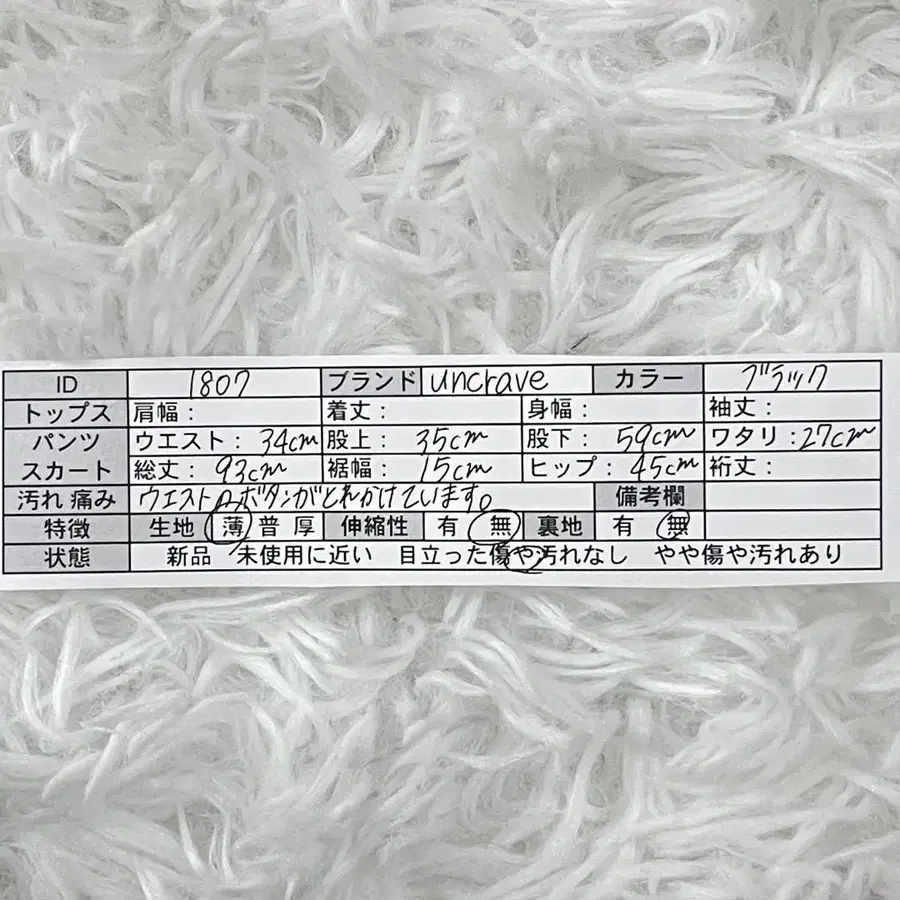 ID 1807 ブランド uncrave カラー ブラック
トップス 肩幅： 着丈： 身幅： 袖丈：
パンツ ウエスト： 34cm 股上： 35cm 股下： 59cm ワタリ：27cm
スカート 総丈：93cm 裾幅： 15cm ヒップ：45cm 裄丈：
汚れ 痛み ウエストのボタンがとれかけています。 備考欄
特徴 生地 薄 普 厚 伸縮性 有 無 裏地 有 無
状態 新品 未使用に近い 目立った傷や汚れなし やや傷や汚れあり